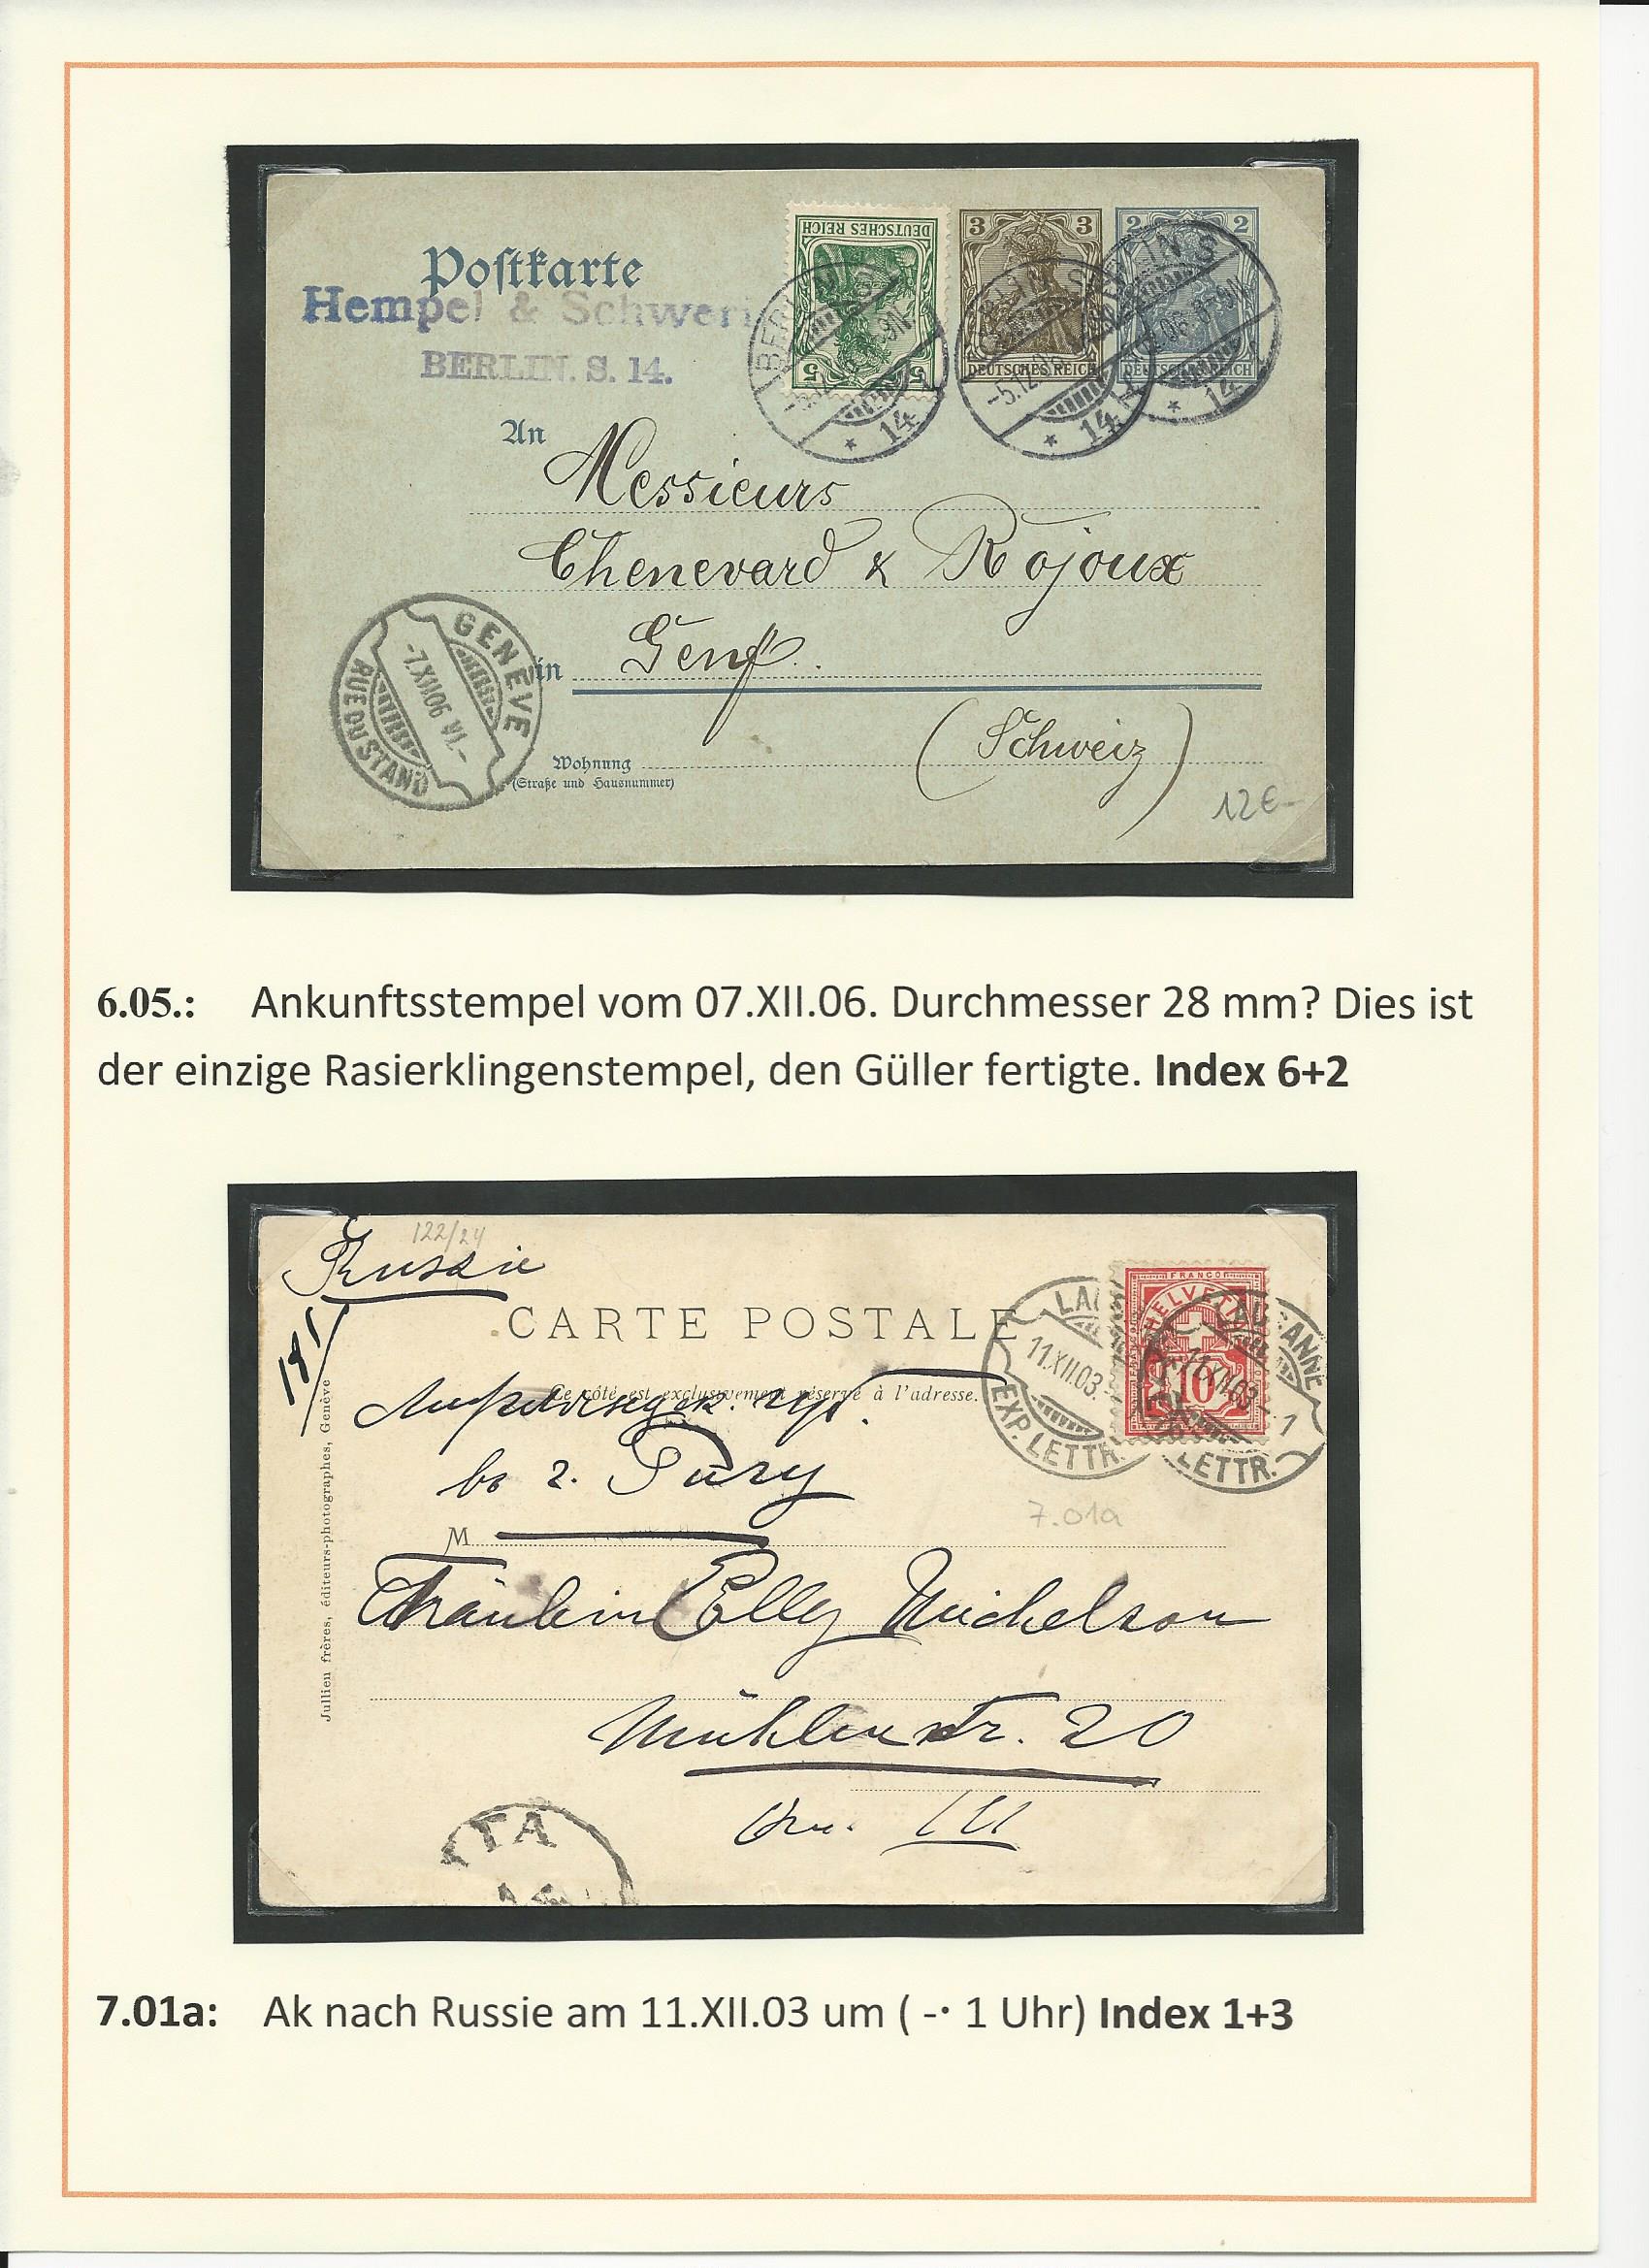 DEUTSCHES REICH
5 5
3 3
DEUTSCHES REICH
2 2
DEUTSCHES REICH
BERLIN S
-5.12.06
* 14
BERLIN S
-5.12.06
* 14
BERLIN S
* 14
Postkarte
Hempel & Schweri
BERLIN. S. 14.
An
Messieurs
Chenevard & Rojoux
in Genf.
(Schweiz)
GENÈVE
-7.XII.06 VI.-
RUE DU STAND
Wohnung
(Straße und Hausnummer)
12€-
6.05.: Ankunftsstempel vom 07.XII.06. Durchmesser 28 mm? Dies ist
der einzige Rasierklingenstempel, den Güller fertigte. Index 6+2
122/24
Russie
CARTE POSTALE
Ce côté est exclusivement réservé à l'adresse.
FRANCO
HELVETIA
10
LAU
11.XII.03.
EXP. LETTR.
LAUSANNE
11.XII.03. - 1
LETTR.
7.01a
M
Fräulein Elly Michelson
Mühlenstr. 20
Jullien frères, éditeurs-photographes, Genève
7.01a: Ak nach Russie am 11.XII.03 um ( -· 1 Uhr) Index 1+3